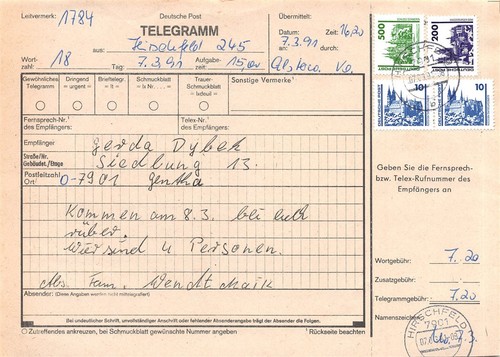 Leitvermerk: 1784
Deutsche Post
TELEGRAMM
Übermittelt:
Datum 7.3.91 Zeit 1620
an: durch:
aus: Hirschfeld 245
Wort-zahl: 18 Tag: 7.3.91 Aufgabe-zeit: 15,00
Gewöhnliches Telegramm
Dringend = urgent =
Briefteleg. = lt =
Schmuckblatt = lx Nr. ... =
Trauer-Schmuckblatt = lxdeuil =
Sonstige Vermerke¹
Fernsprech-Nr.¹ des Empfängers:
Telex-Nr.¹ des Empfängers:
Empfänger Gerda Dybek
Straße/Nr. Gebäudet./Etage Siedlung 13.
Postleitzahl Ort/ O-7901
Kommen am 8.3. bei euch
rüber.
Wir sind 4 Personen.
Abs. Fam. Wendt Maik
Absender: (Diese Angaben werden nicht mittelegrafiert)
Bei undeutlicher Schrift, unvollständiger Anschrift oder fehlender Absenderangabe trägt der Absender die Folgen.
○ Zutreffendes ankreuzen, bei Schmuckblatt gewünschte Nummer angeben
¹ Rückseite beachten
500
200
10
10
HIRSCHFELD
Geben Sie die Fernsprech-
bzw. Telex-Rufnummer des
Empfängers an
Wortgebühr: 7.20
Zusatzgebühr:
Telegrammgebühr: 7.20
Namenszeichen:
HIRSCHFELD
7901